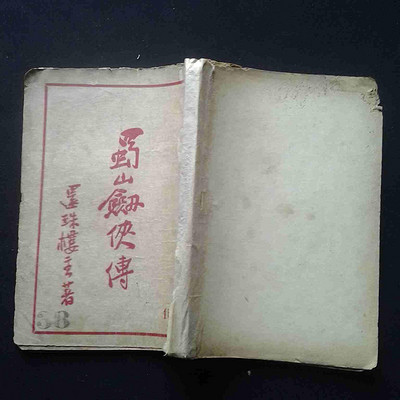 蜀山劔俠傳
還珠樓主著
38